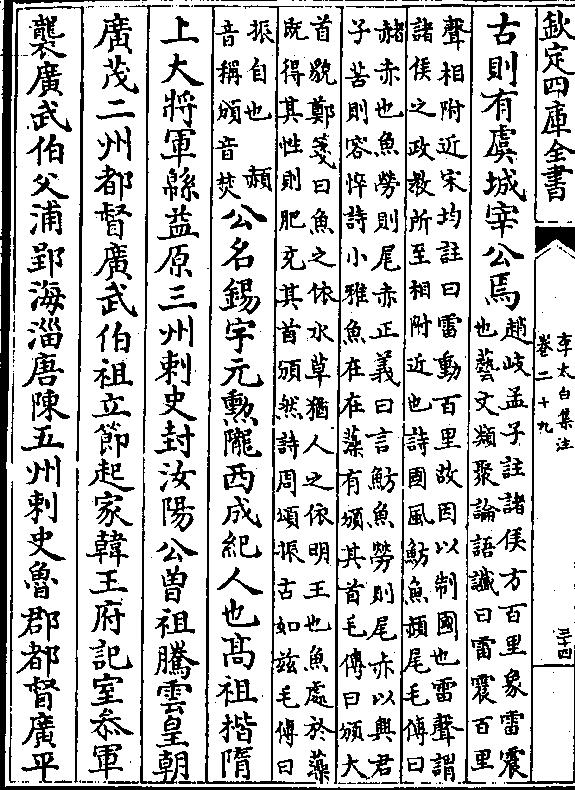 欽定四庫全書
李太白集注
卷二十九
三十四
古則有虞城宰公焉
趙岐孟子註諸侯方百里象雷震
也藝文類聚論語讖曰雷震百里
聲相附近宋均註曰雷動百里故因以制國也雷聲謂
諸侯之政教所至相附近也詩國風魴魚赬尾毛傳曰
赬赤也魚勞則尾赤正義曰言魴魚勞則尾赤以興君
子苦則容悴詩小雅魚在在藻有頒其首毛傳曰頒大
首貌鄭箋曰魚之依水草猶人之依明王也魚處於藻
既得其性則肥充其首頒然詩周頌振古如兹毛傳曰
振自也 赬
音稱頒音焚
公名錫字元勲隴西成紀人也高祖揩隋
上大將軍緜益原三州刺史封汝陽公曽祖騰雲皇朝
廣茂二州都督廣武伯祖立節起家韓王府記室叅軍
襲廣武伯父浦郢海淄唐陳五州刺史魯郡都督廣平